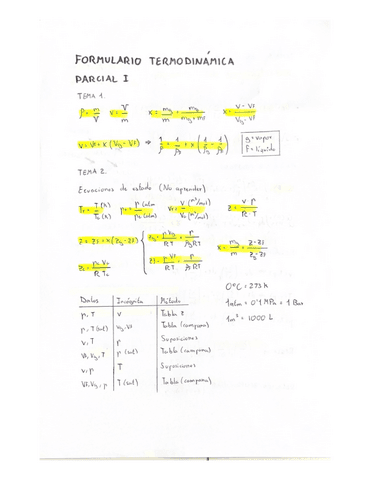 FORMULARIO TERMODINÁMICA
PARCIAL I
TEMA 1.
ρ = m/V   v = V/m   x = mg/m = mg/(mg+mf)   x = (v - vf)/(vg - vf)
v = vf + x(vg - vf) ⇒ 1/ρ = 1/ρf + x(1/ρg - 1/ρf)
g = vapor
f = líquido
TEMA 2.
Ecuaciones de estado (No aprender)
Tr = T(K)/Tc(K)   pr = p(atm)/pc(atm)   Vr = V(m³/mol)/Vc(m³/mol)   Z = v p/R T
Z = Zf + x(Zg - Zf)
Zg = p vg/R T = p/ρg R T
Zf = p vf/R T = p/ρf R T
x = mg/m = (Z - Zf)/(Zg - Zf)
Zc = pc vc/R Tc
0ºC = 273 K
1 atm = 0'1 MPa = 1 Bar
1 m³ = 1000 L
Datos | Incógnita | Método
p, T | v | Tabla Z
p, T (sat) | vg, vf | Tabla (campana)
v, T | p | Suposiciones
vf, vg, T | p (sat) | Tabla (campana)
v, p | T | Suposiciones
vf, vg, p | T (sat) | Tabla (campana)